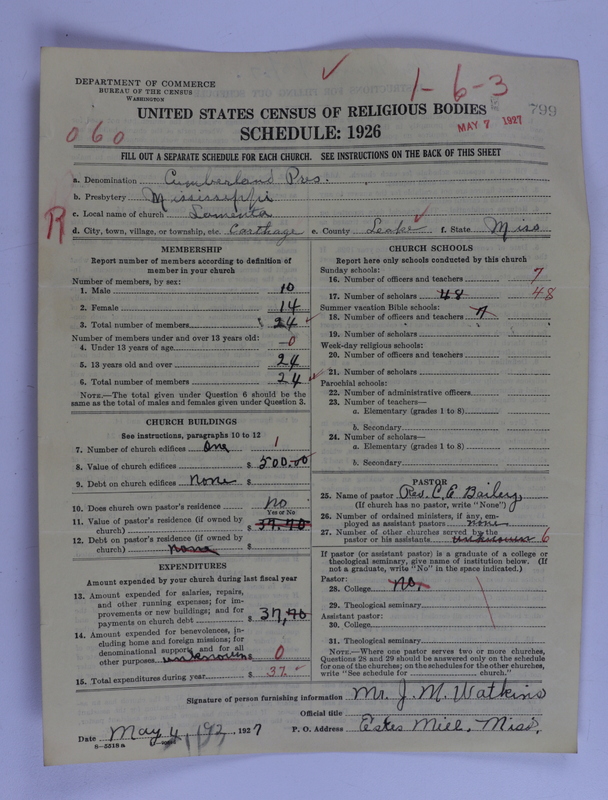 DEPARTMENT OF COMMERCE
BUREAU OF THE CENSUS
WASHINGTON
1-6-3
UNITED STATES CENSUS OF RELIGIOUS BODIES
799
060
SCHEDULE: 1926
MAY 7 1927
FILL OUT A SEPARATE SCHEDULE FOR EACH CHURCH. SEE INSTRUCTIONS ON THE BACK OF THIS SHEET
a. Denomination Cumberland Pres.
b. Presbytery Mississippi
R
c. Local name of church Lamenta
d. City, town, village, or township, etc. Carthage e. County Leake f. State Miss
MEMBERSHIP
Report number of members according to definition of
member in your church
Number of members, by sex:
1. Male 10
2. Female 14
3. Total number of members 24
Number of members under and over 13 years old:
4. Under 13 years of age 0
5. 13 years old and over 24
6. Total number of members 24
NOTE.—The total given under Question 6 should be the
same as the total of males and females given under Question 3.
CHURCH BUILDINGS
See instructions, paragraphs 10 to 12
7. Number of church edifices One 1
8. Value of church edifices $ 500.00
9. Debt on church edifices None $
10. Does church own pastor's residence? No
Yes or No
11. Value of pastor's residence (if owned by
church) $ 37.70
12. Debt on pastor's residence (if owned by
church) none $
EXPENDITURES
Amount expended by your church during last fiscal year
13. Amount expended for salaries, repairs,
and other running expenses; for im-
provements or new buildings; and for
payments on church debt $ 37,70
14. Amount expended for benevolences, in-
cluding home and foreign missions; for
denominational support; and for all
other purposes unknown $ 0
15. Total expenditures during year $ 37.
CHURCH SCHOOLS
Report here only schools conducted by this church
Sunday schools:
16. Number of officers and teachers 7
17. Number of scholars 48 48
Summer vacation Bible schools:
18. Number of officers and teachers 7
19. Number of scholars
Week-day religious schools:
20. Number of officers and teachers
21. Number of scholars
Parochial schools:
22. Number of administrative officers
23. Number of teachers—
a. Elementary (grades 1 to 8)
b. Secondary
24. Number of scholars—
a. Elementary (grades 1 to 8)
b. Secondary
PASTOR
25. Name of pastor Rev. C. E. Bailey
(If church has no pastor, write "None")
26. Number of ordained ministers, if any, em-
ployed as assistant pastors none
27. Number of other churches served by the
pastor or his assistants unknown 6
If pastor (or assistant pastor) is a graduate of a college or
theological seminary, give name of institution below. (If
not a graduate, write "No" in the space indicated.)
Pastor:
28. College no.
29. Theological seminary
Assistant pastor:
30. College
31. Theological seminary
NOTE.—Where one pastor serves two or more churches,
Questions 28 and 29 should be answered only on the schedule
for one of the churches; on the schedules for the other churches,
write "See schedule for church."
Signature of person furnishing information Mr. J. M. Watkins
Official title
Date May 4, 1927 P. O. Address Estes Mill, Miss.
8-5518a